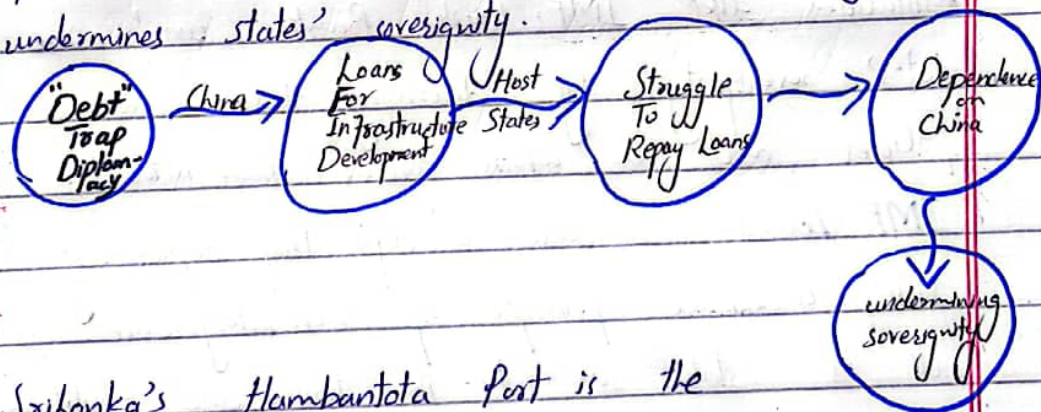 undermines states' soverignity.
"Debt"
Trap
Diplom-
acy
China
Loans
For
Infrastructure
Development
Host
States
Struggle
To
Repay Loans
Dependence
on
China
undermining
soverignity
Srilonka's Hambantota Port is the